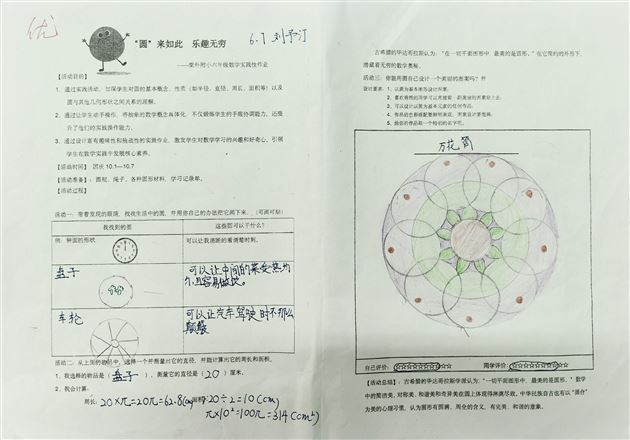 优
"圆"来如此 乐趣无穷
6.7 刘予汀
——棠外附小六年级数学实践性作业
【活动目的】
1、通过实践活动,加深学生对圆的基本概念、性质(如半径、直径、周长、面积等)以及
圆与其他几何形状之间关系的理解。
2、通过让学生动手操作,将抽象的数学概念具体化,不仅锻炼学生的手眼协调能力,还提
升了他们的实践操作能力。
3、通过设计富有趣味性和挑战性的实践作业,激发学生对数学学习的兴趣和好奇心,引领
学生在数学实践中发展核心素养。
【活动时间】 国庆 10.1—10.7
【活动准备】:圆规、绳子、各种圆形材料,学习记录单。
【活动过程】
活动一:带着发现的眼睛,找找生活中的圆,并用你自己的办法把它画下来。(可画可贴)
我找到的圆 这些圆可以干什么?
例:钟面的形状 可以让我清晰的看清楚时刻。
盘子
可以让中间的菜受热均
匀,且容易做成。
车轮
可以让汽车驾驶时不那么
颠簸
活动二:从上面的物品中,选择一个并测量出它的直径,并能计算出它的周长和面积。
1、我选择的物品是(盘子),测量它的直径是(20)厘米。
2、我会计算:
周长:20×π=20π=62.8(cm) 面积:20÷2=10(cm)
π×10²=100π=314(cm²)
古希腊的毕达哥拉斯认为:"在一切平面图形中,最美的是圆形。"在它简约的外形下,
潜藏着无穷的数学奥秘。
活动三:你能用圆自己设计一个美丽的图案吗?
设计要求:1、以圆为基本图形设计图案。
3、可以设计以圆为基本元素的任何作品;
4、作品的色彩搭配要鲜明美观,图案设计要饱满;
5、给你的作品取一个特别的名字吧。
万花筒
自己评价: 同学评价:
【活动总结】:古希腊的毕达哥拉斯学派认为:"一切平面图形中,最美的是圆形。"数学
中的简洁美、对称美、和谐美和奇异美在圆上体现得淋漓尽致。中华民族自古也有以"圆合"
为美的心理习惯,认为圆形有圆满、周全的含义,有完美、和谐的意象。